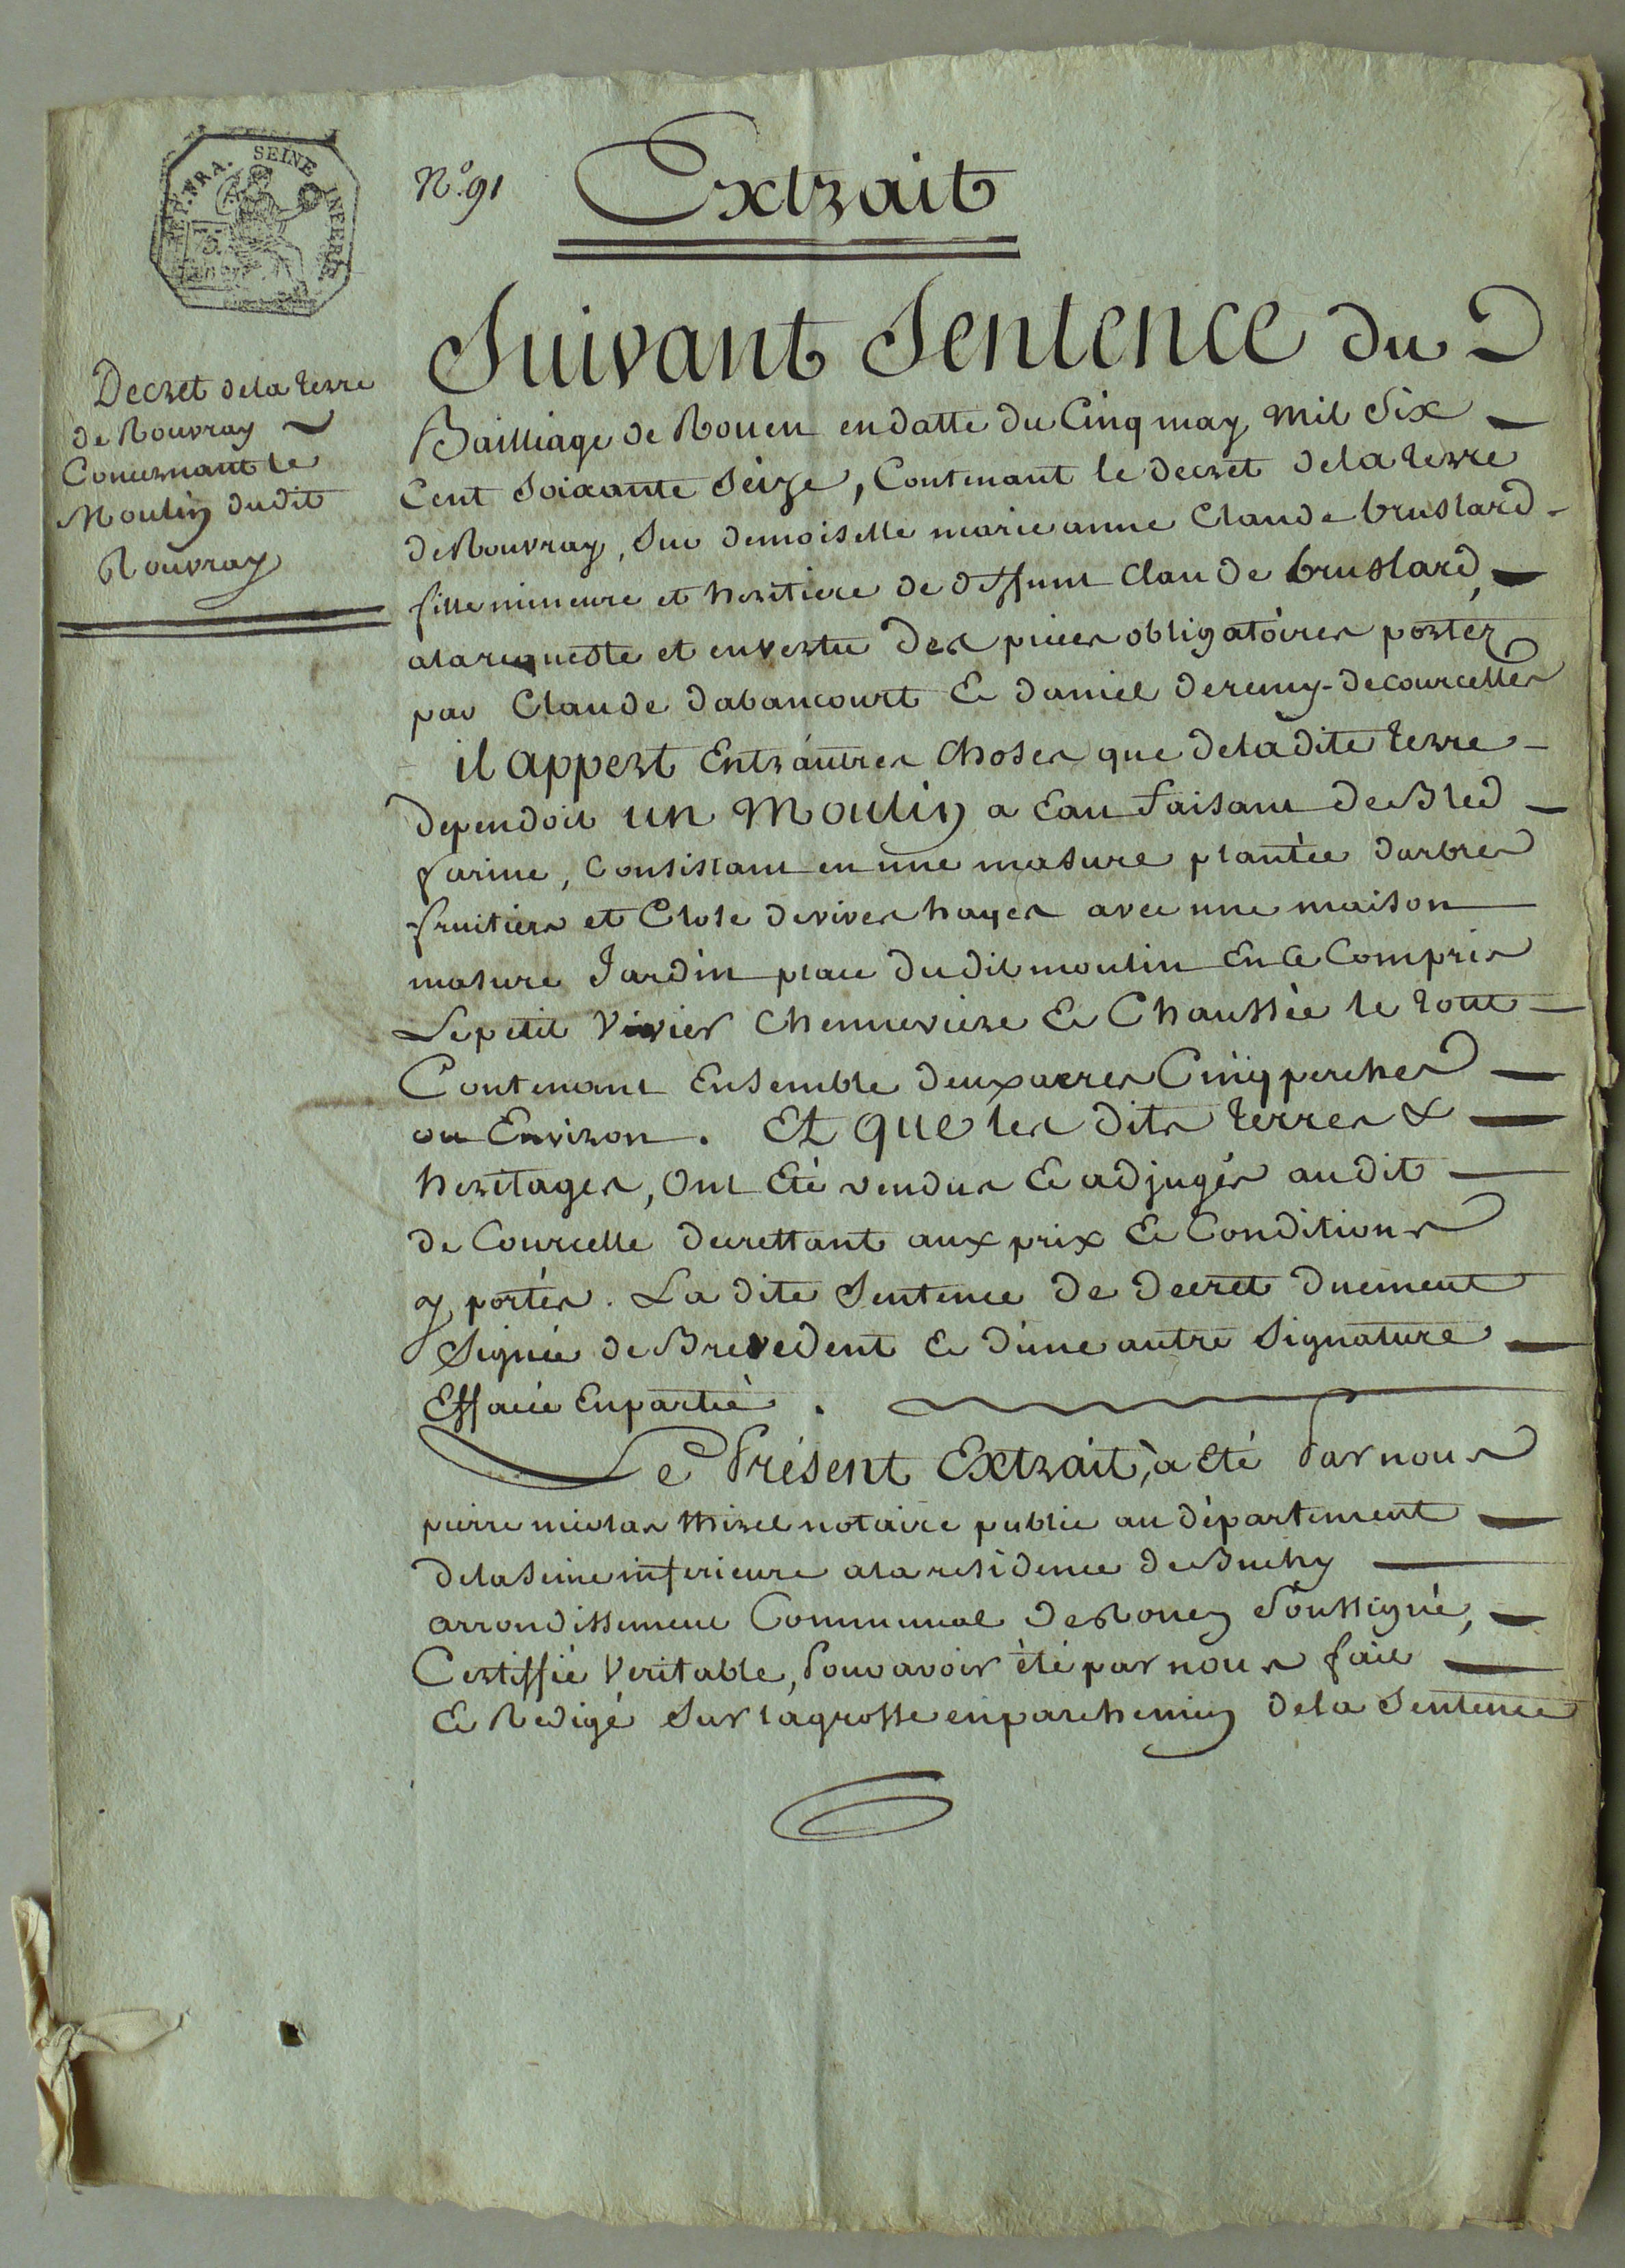 FRA. SEINE INFERE
N.º 91
Extrait
Decret dela terre
de Rouvray
Concernant le
Moulin dudit
Rouvray
Suivant Sentence du
Bailliage de Rouen en datte du Cinq may mil Six
Cent Soixante Seize, Contenant le decret dela terre
de Rouvray, Sur demoiselle marie anne Claude bruslard
fille mineure et heritiere de deffunt Claude bruslard,
alarequeste et envertu des pieces obligatòires portez
par Claude dabancourt & daniel deremy-decourcelles
il appert Entràutres Choses que deladite terre
dependoit un Moulin a Eau faisant de Bled
farine, Consistant en une masure plantée darbres
fruitiers et Close devives hayes avec une maison
masure Jardin place dudit moulin En Ce Compris
Le petit Vivier Chenneviere & Chaussée le tout
Contenant Ensemble deux acres Cinq perches
ou Environ. Et que les dits terres &
heritages, Ont Eté vendus & adjugés audit
de Courcelle decrettant aux prix & Conditions
y portés. La dite Sentence de decret duement
Signée de Brevedent & d'une autre Signature
Effacée Enpartie.
Le Présent Extrait, a eté Par nous
pierre nicolas thirel notaire public au département
dela Seine inferieure ala residence de Buchy
arrondissement Communal de Rouen Soussigné,
Certiffié Veritable, Pour avoir été par nous fait
& Redigé Sur lagrosse enparchemin dela Sentence